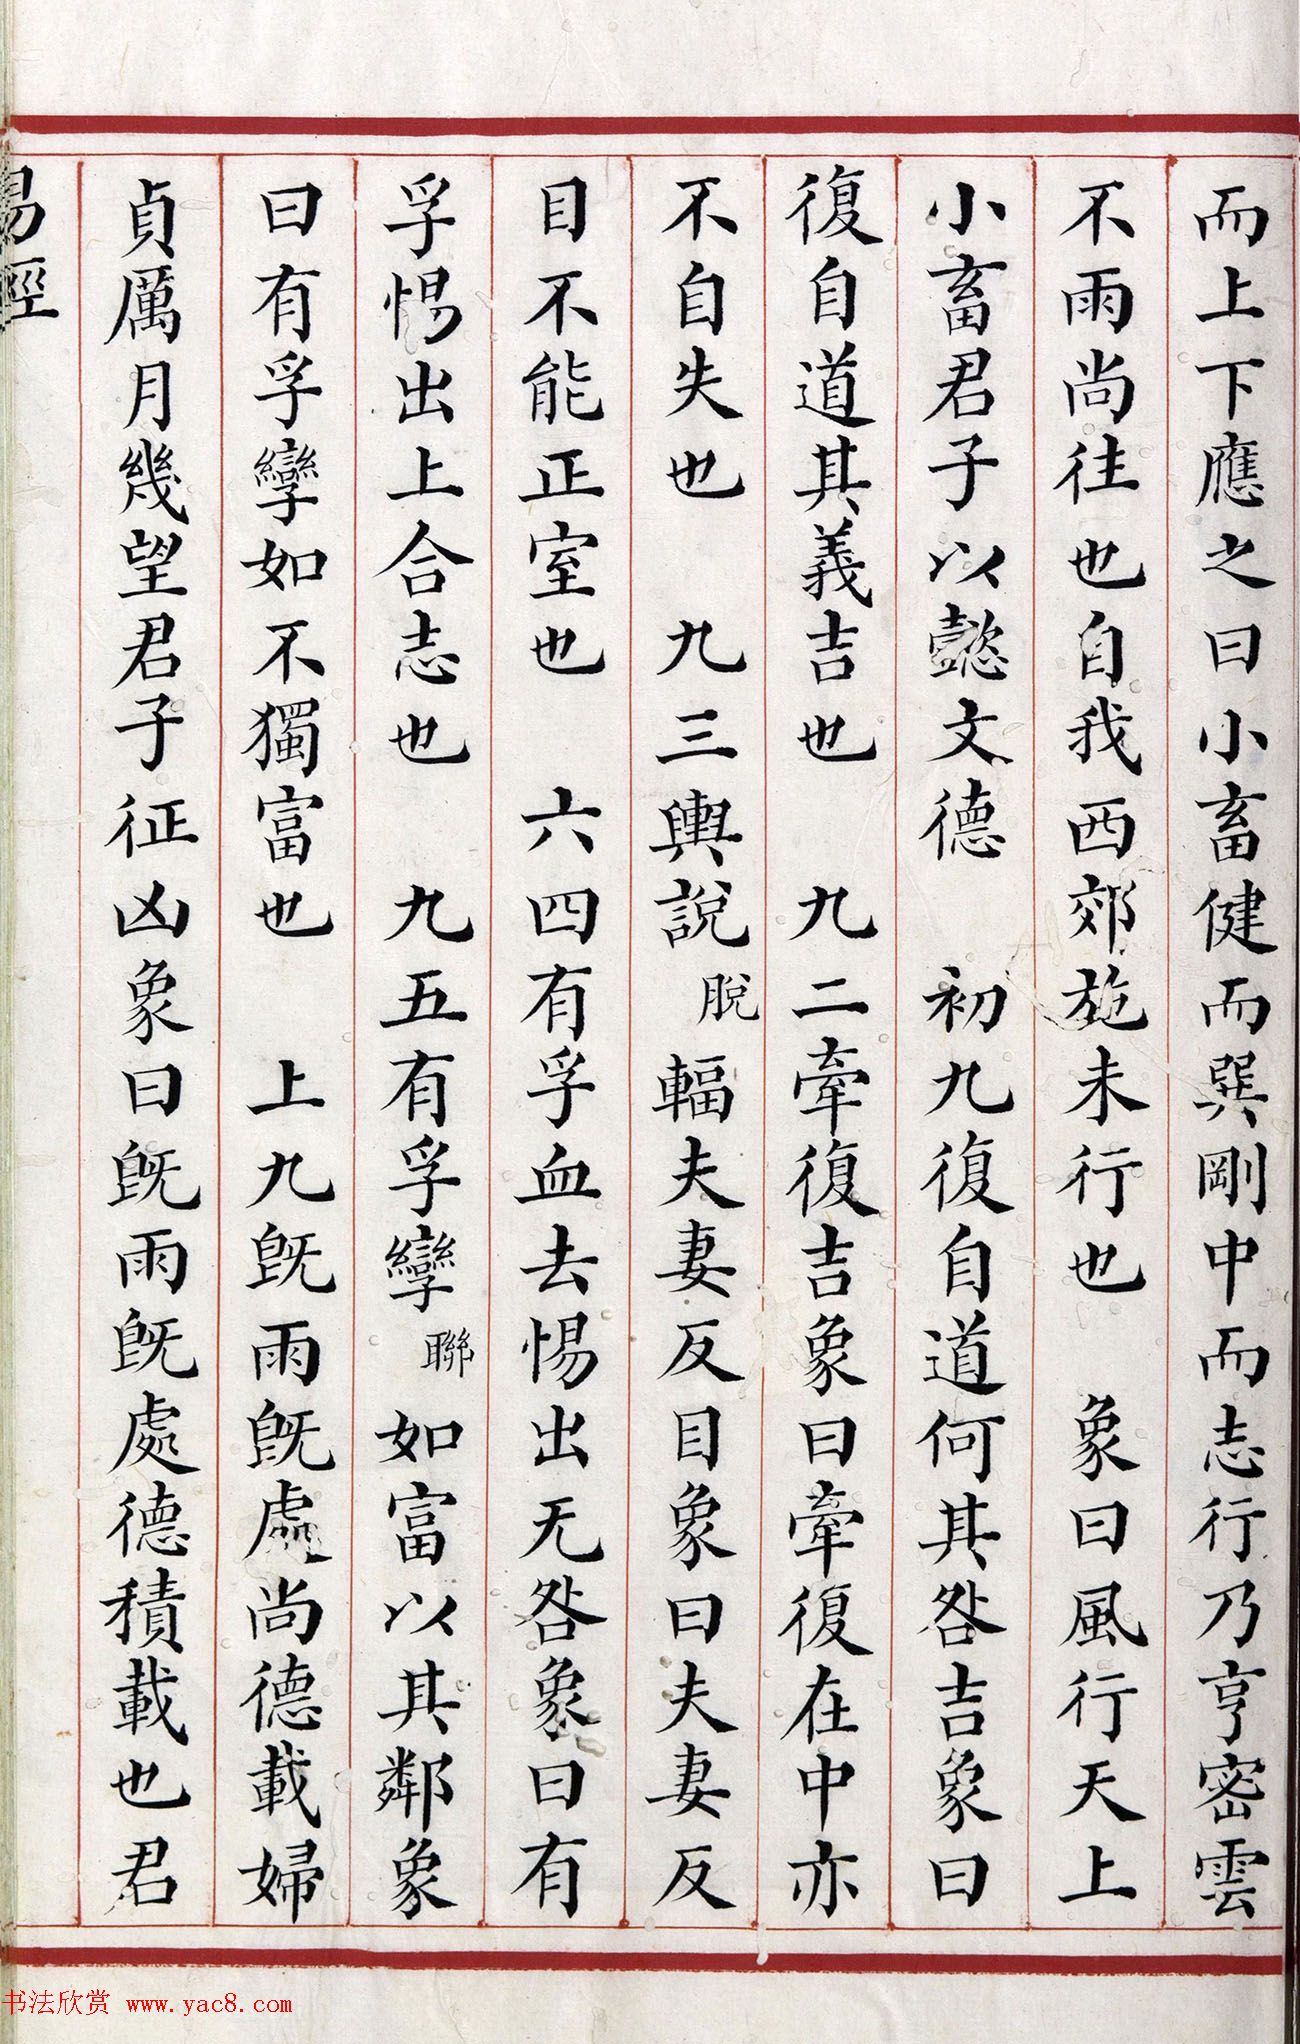 而上下應之曰小畜健而巽剛中而志行乃亨密雲
不雨尚往也自我西郊施未行也　象曰風行天上
小畜君子以懿文德　初九復自道何其咎吉象曰
復自道其義吉也　九二牽復吉象曰牽復在中亦
不自失也　九三輿說脫輻夫妻反目象曰夫妻反
目不能正室也　六四有孚血去惕出无咎象曰有
孚惕出上合志也　九五有孚攣聯如富以其鄰象
曰有孚攣如不獨富也　上九既雨既處尚德載婦
貞厲月幾望君子征凶象曰既雨既處德積載也君
易經
书法欣赏 www.yac8.com